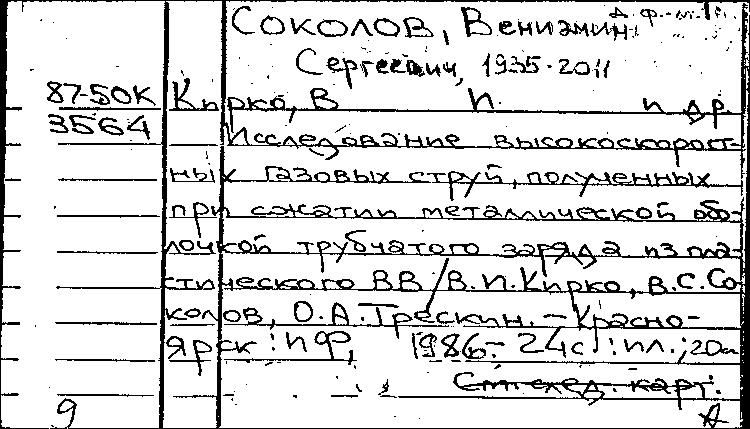 д. ф.-м.н.
Соколов, Вениамин
Сергеевич, 1935-2011
87-50К Кирко, В И и др.
3564 Исследование высокоскорост-
ных газовых струй, полученных
при сжатии металлической обо-
лочкой трубчатого заряда из пла-
стического ВВ / В.И. Кирко, В.С. Со-
колов, О.А. Трескин. – Красно-
ярск : ИФ, 1986. – 24с. : ил.; 20см
См. след. карт.
9 А